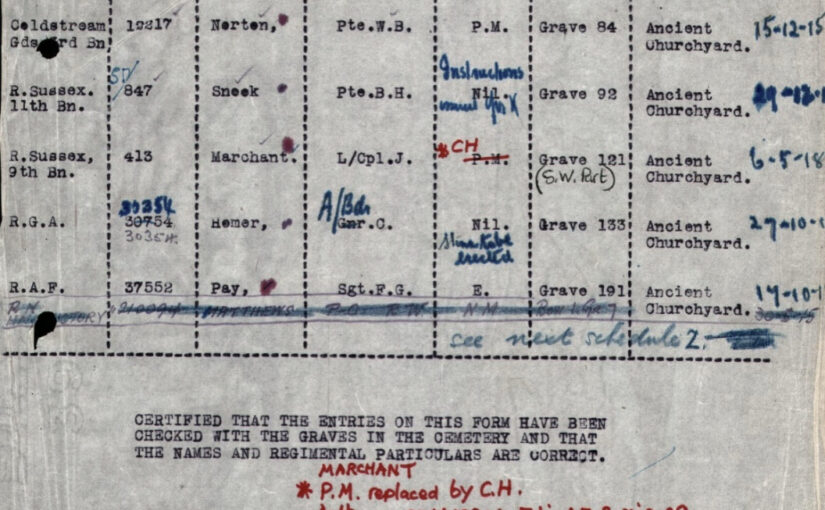 Coldstream 19217 Norton, Pte.W.B. P.M. Grave 84 Ancient 15-12-15
Gds. 3rd Bn Churchyard.
57/ Instructions
R.Sussex. 847 Snook Pte.B.H. Nil. Grave 92 Ancient
11th Bn. Churchyard.
R.Sussex, 413 Marchant. L/Cpl.J. * CH P.M. Grave 121 Ancient 6-5-18
9th Bn. (S.W. Part) Churchyard.
30354 A/Bdr
R.G.A. 30754 Homer, Gnr.C. Nil. Grave 133 Ancient 27-10-1
30354. Stone to be Churchyard.
erected
R.A.F. 37552 Pay, Sgt.F.G. E. Grave 191 Ancient 17-10-1
R.N. 210094 MATTHEWS P.O. R.W N.M. Row 1. Gr 7 Churchyard. 30-5-15
see next schedule 2.
CERTIFIED THAT THE ENTRIES ON THIS FORM HAVE BEEN
CHECKED WITH THE GRAVES IN THE CEMETERY AND THAT
THE NAMES AND REGIMENTAL PARTICULARS ARE CORRECT.
MARCHANT
* P.M. replaced by C.H.